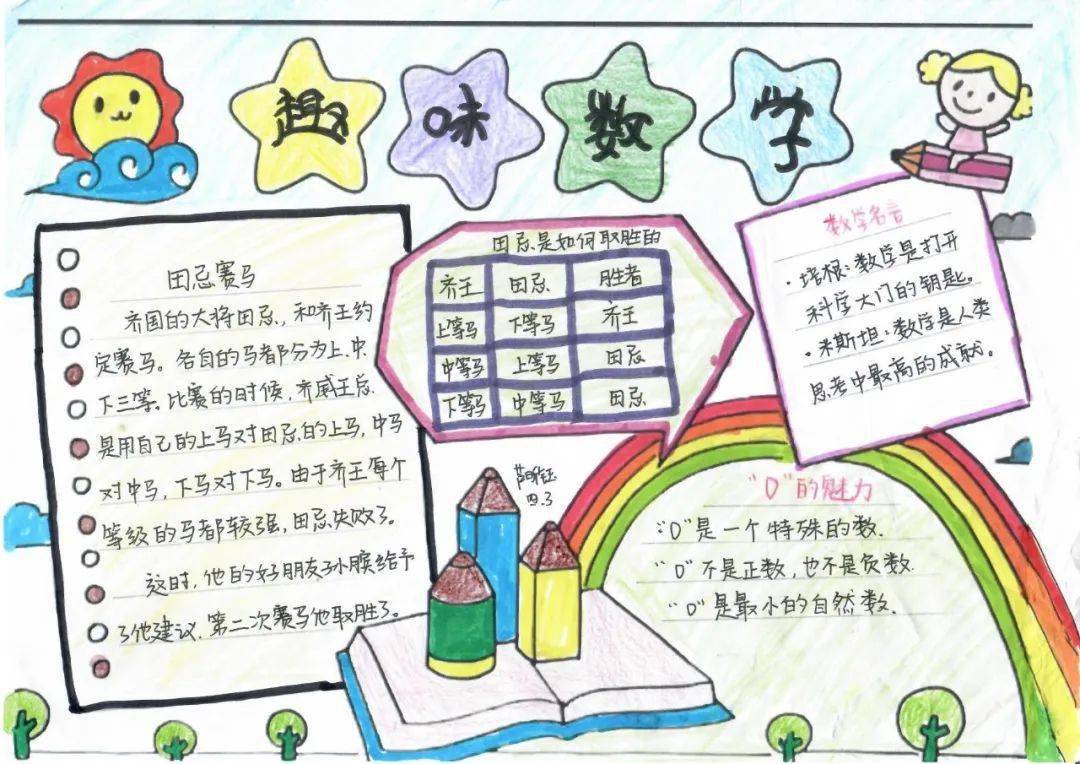 趣味数学
田忌赛马
齐国的大将田忌，和齐王约
定赛马。各自的马都分为上、中、
下三等。比赛的时候，齐威王总
是用自己的上马对田忌的上马，中马
对中马，下马对下马。由于齐王每个
等级的马都较强，田忌失败了。
这时，他的好朋友孙膑给予
了他建议，第二次赛马他取胜了。
田忌是如何取胜的
齐王 田忌 胜者
上等马 下等马 齐王
中等马 上等马 田忌
下等马 中等马 田忌
数学名言
·培根：数学是打开
科学大门的钥匙。
·米斯坦：数学是人类
思考中最高的成就。
四.3
“0”的魅力
“0”是一个特殊的数.
“0”不是正数，也不是负数.
“0”是最小的自然数.